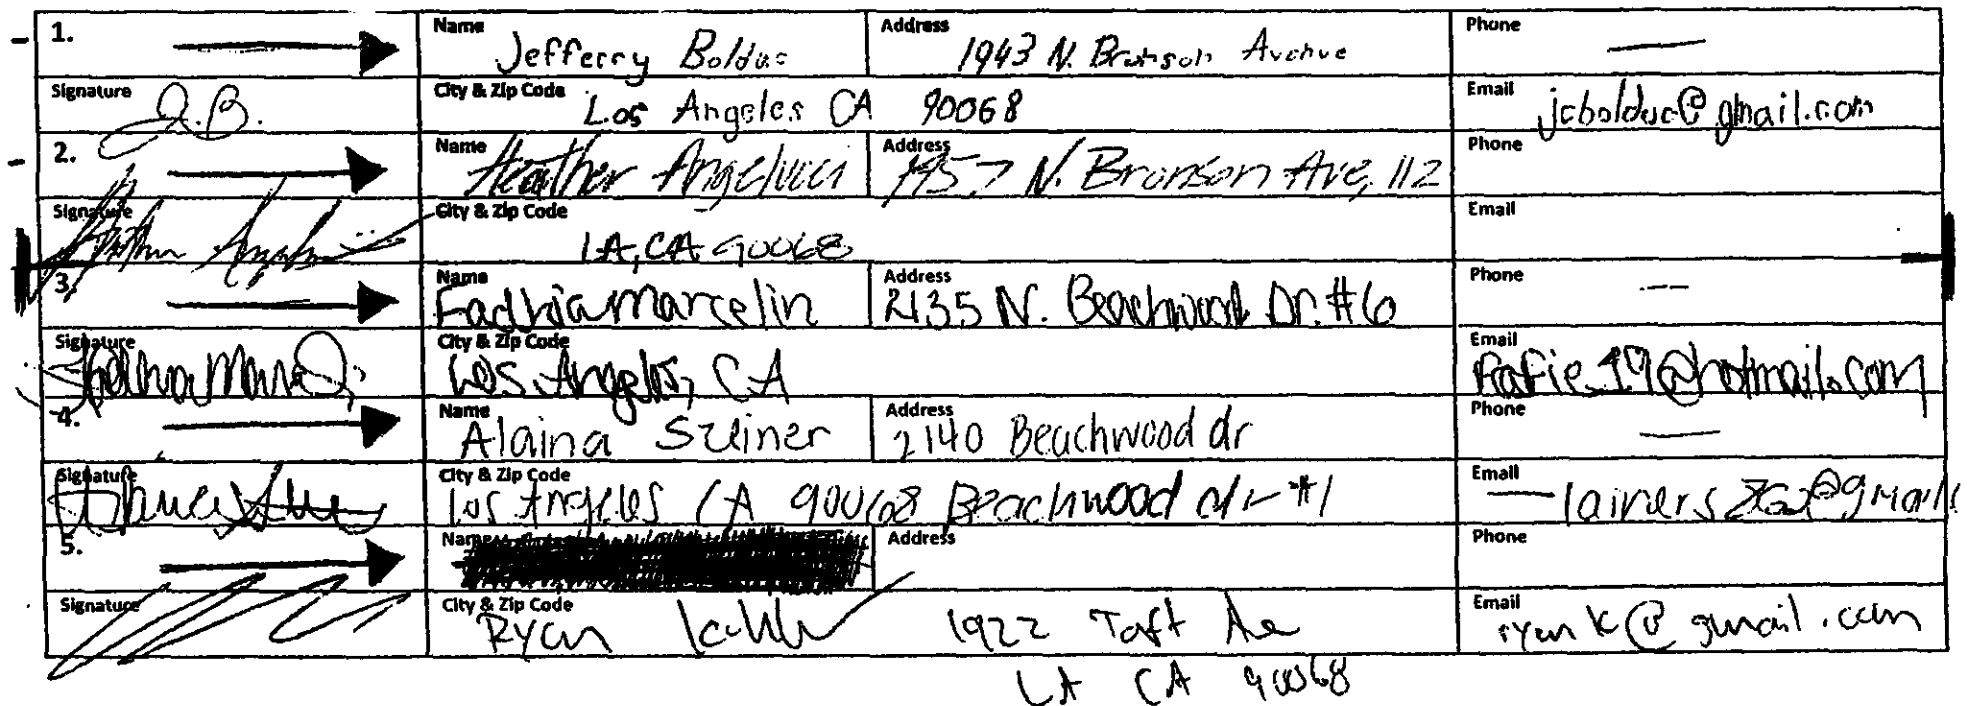 1. Name Jefferry Bolduc Address 1943 N. Bronson Avenue Phone —
Signature J.B. City & Zip Code Los Angeles CA 90068 Email jcbolduc@gmail.com
2. Name Heather Angelucci Address 1957 N. Bronson Ave, 112 Phone
Signature City & Zip Code LA, CA 90068 Email
3. Name Fadhia Marcelin Address 2135 N. Beachwood Dr. #6 Phone —
Signature City & Zip Code Los Angeles, CA Email fafie.19@hotmail.com
4. Name Alaina Address 2140 Beachwood dr Phone —
Signature City & Zip Code Los Angeles CA 90068 Beachwood dr #1 Email
5. Name Address Phone
Signature City & Zip Code Ryan 1922 Taft Ave Email ryank@gmail.com
LA CA 90068